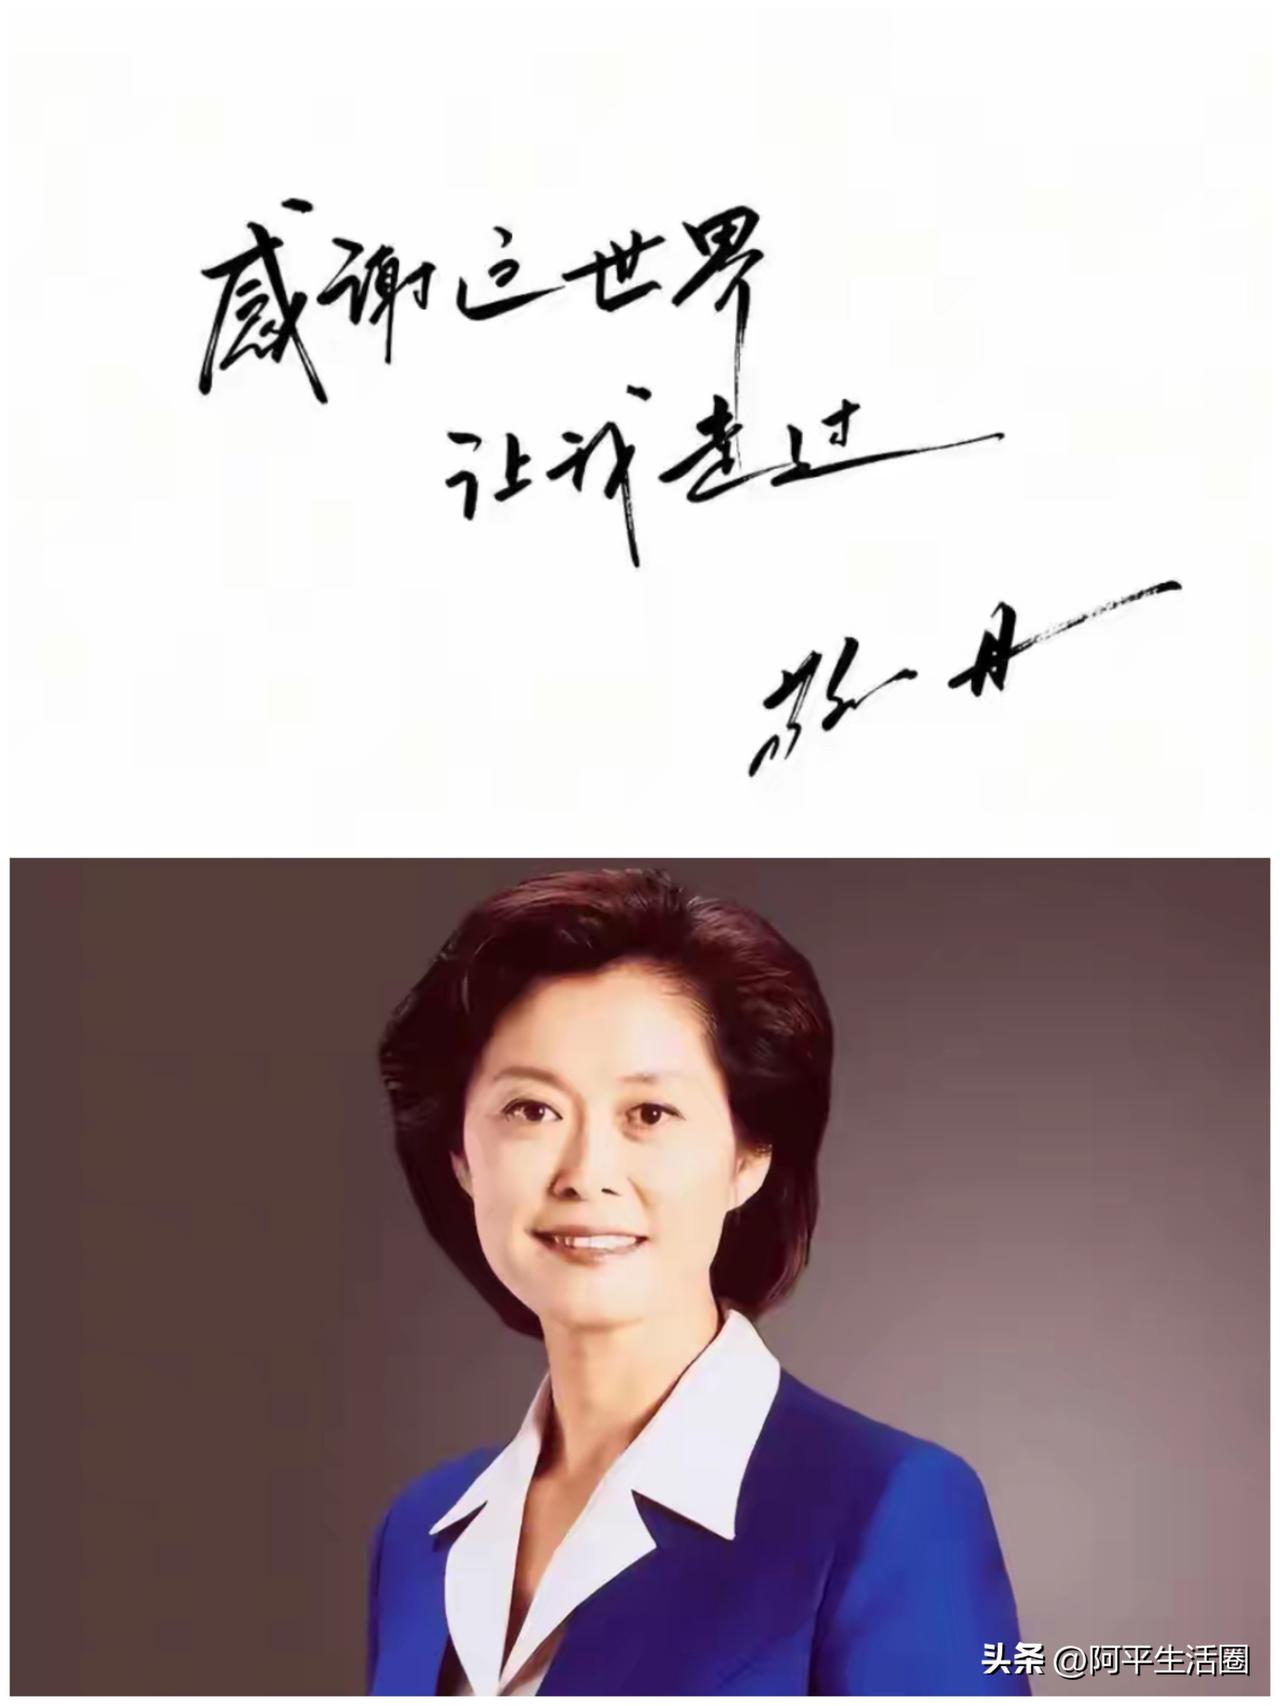 感谢这世界
让我走过
敬一丹
头条 @阿平生活圈